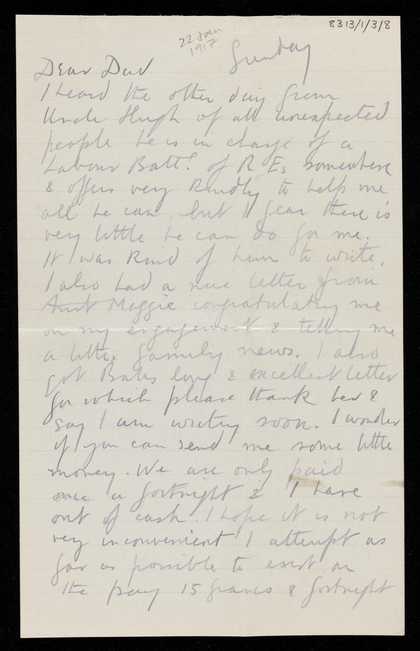 8313/1/3/8
22 Jan
1917
Sunday
Dear Dad
I heard the other day from
Uncle Hugh of all unexpected
people he is in charge of a
Labour Batt. of R Es somewhere
& offers very kindly to help me
all he can, but I fear there is
very little he can do for me.
It was kind of him to write.
I also had a nice letter from
Aunt Maggie congratulating me
on my engagement & telling me
a little family news. I also
got long & excellent letter
for which please thank her &
say I am writing soon. I wonder
if you can send me some little
money. We are only paid
once a fortnight & I have
out of cash. I hope it is not
very inconvenient I attempt as
far as possible to exist on
the pay 15 francs a fortnight